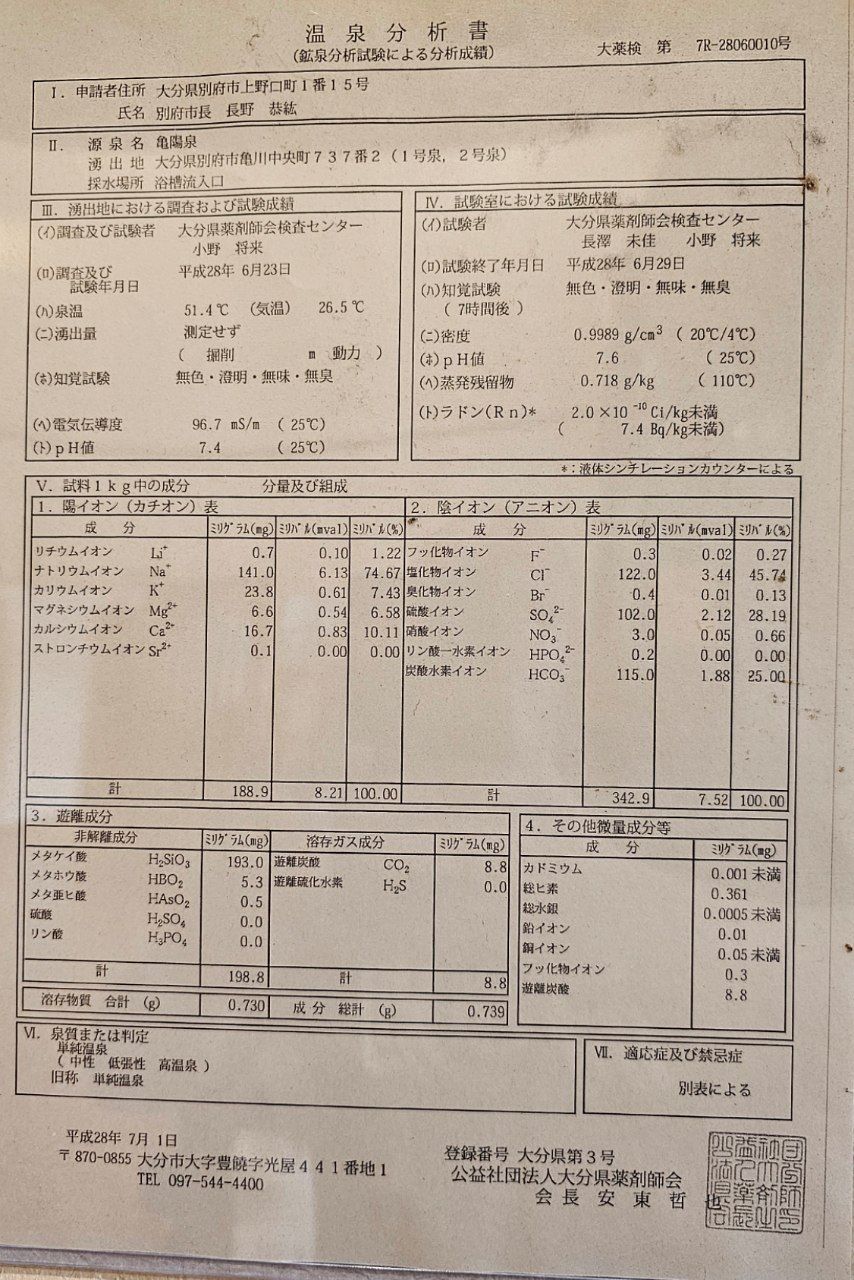 温泉分析書
(鉱泉分析試験による分析成績)
大薬検 第 7R-28060010号
Ⅰ. 申請者住所 大分県別府市上野口町1番15号
氏名 別府市長 長野 恭紘
Ⅱ. 源泉名 亀陽泉
湧出地 大分県別府市亀川中央町737番2(1号泉, 2号泉)
採水場所 浴槽流入口
Ⅲ. 湧出地における調査および試験成績
(イ)調査及び試験者 大分県薬剤師会検査センター
小野 将来
(ロ)調査及び 平成28年 6月23日
試験年月日
(ハ)泉温 51.4℃ (気温) 26.5℃
(ニ)湧出量 測定せず
( 掘削 m 動力 )
(ホ)知覚試験 無色・澄明・無味・無臭
(ヘ)電気伝導度 96.7 mS/m (25℃)
(ト)pH値 7.4 (25℃)
Ⅳ. 試験室における試験成績
(イ)試験者 大分県薬剤師会検査センター
長澤 未佳 小野 将来
(ロ)試験終了年月日 平成28年 6月29日
(ハ)知覚試験 無色・澄明・無味・無臭
( 7時間後 )
(ニ)密度 0.9989 g/cm³ ( 20℃/4℃)
(ホ)pH値 7.6 (25℃)
(ヘ)蒸発残留物 0.718 g/kg (110℃)
(ト)ラドン(Rn)* 2.0×10⁻¹⁰ Ci/kg未満
( 7.4 Bq/kg未満)
*:液体シンチレーションカウンターによる
Ⅴ. 試料1kg中の成分 分量及び組成
1. 陽イオン(カチオン)表
成 分 ミリグラム(mg) ミリバル(mval) ミリバル(%)
リチウムイオン Li⁺ 0.7 0.10 1.22
ナトリウムイオン Na⁺ 141.0 6.13 74.67
カリウムイオン K⁺ 23.8 0.61 7.43
マグネシウムイオン Mg²⁺ 6.6 0.54 6.58
カルシウムイオン Ca²⁺ 16.7 0.83 10.11
ストロンチウムイオン Sr²⁺ 0.1 0.00 0.00
計 188.9 8.21 100.00
2. 陰イオン(アニオン)表
成 分 ミリグラム(mg) ミリバル(mval) ミリバル(%)
フッ化物イオン F⁻ 0.3 0.02 0.27
塩化物イオン Cl⁻ 122.0 3.44 45.74
臭化物イオン Br⁻ 0.4 0.01 0.13
硫酸イオン SO₄²⁻ 102.0 2.12 28.19
硝酸イオン NO₃⁻ 3.0 0.05 0.66
リン酸一水素イオン HPO₄²⁻ 0.2 0.00 0.00
炭酸水素イオン HCO₃⁻ 115.0 1.88 25.00
計 342.9 7.52 100.00
3. 遊離成分
非解離成分 ミリグラム(mg)
メタケイ酸 H₂SiO₃ 193.0
メタホウ酸 HBO₂ 5.3
メタ亜ヒ酸 HAsO₂ 0.5
硫酸 H₂SO₄ 0.0
リン酸 H₃PO₄ 0.0
計 198.8
溶存ガス成分 ミリグラム(mg)
遊離炭酸 CO₂ 8.8
遊離硫化水素 H₂S 0.0
計 8.8
溶存物質 合計 (g) 0.730 成分 総計 (g) 0.739
4. その他微量成分等
成 分 ミリグラム(mg)
カドミウム 0.001 未満
総ヒ素 0.361
総水銀 0.0005 未満
鉛イオン 0.01
銅イオン 0.05 未満
フッ化物イオン 0.3
遊離炭酸 8.8
Ⅵ. 泉質または判定
単純温泉
( 中性 低張性 高温泉 )
旧称 単純温泉
Ⅶ. 適応症及び禁忌症
別表による
平成28年 7月 1日
〒870-0855 大分市大字豊饒字光屋441番地1
TEL 097-544-4400
登録番号 大分県第3号
公益社団法人大分県薬剤師会
会長 安東哲也